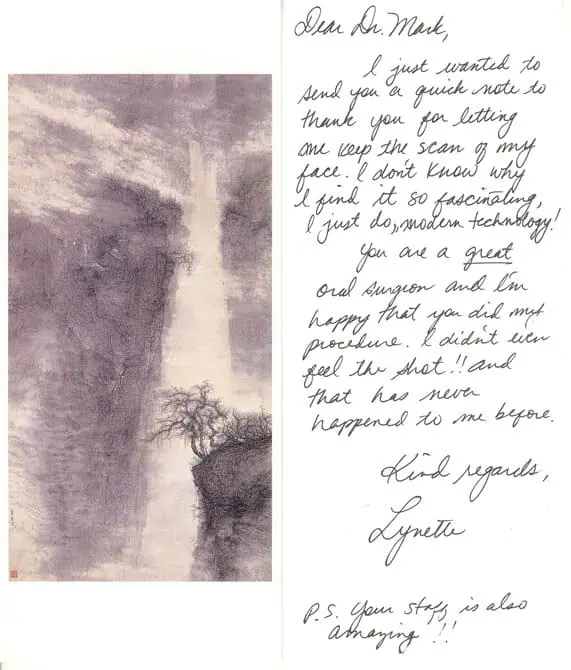 Dear Dr. Mark,
I just wanted to
send you a quick note to
thank you for letting
me keep the scan of my
face. I don't know why
I find it so fascinating,
I just do,, modern technology!
You are a great
oral surgeon and I'm
happy that you did my
procedure. I didn't even
feel the shot!! and
that has never
happened to me before.
Kind regards,
Lynette
P.S. Your staff is also
amazing!!